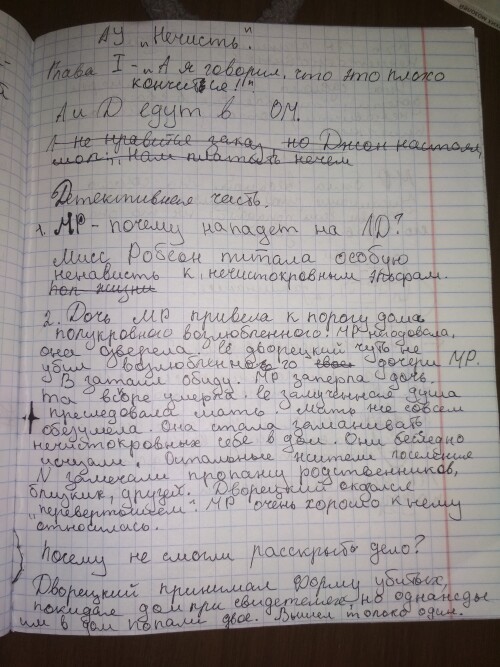 АУ „Нечисть".
Глава I - „А я говорил, что это плохо
кончится!!"
Л и D едут в ОМ.
Л не нравится заказ, но Джон настоял,
мол: „Нам платить нечем
Детективная часть.
1. МР - почему нападет на ЛD?
Мисс Робсон питала особую
ненависть к нечистокровным эльфам.
при жизни
2. Дочь МР привела к порогу дома
полукровного возлюбленного. МР негодовала,
она озверела. Её дворецкий чуть не
убил возлюбленного свое дочери МР.
В затаил обиду. МР заперла дочь.
Та вскоре умерла. Её замученная душа
преследовала мать. Мать же совсем
обезумела. Она стала заманивать
нечистокровных себе в дом. Они бесследно
исчезали. Остальные жители поселения
N замечали пропажу родственников,
близких, друзей. Дворецкий оказался
„перевертышем". МР очень хорошо к нему
относилась.
Почему не смогли расскрыть дело?
Дворецкий принимал форму убитых,
покидал дом при свидетелях, но однажды
им в дом попали двое. Вышел только один.